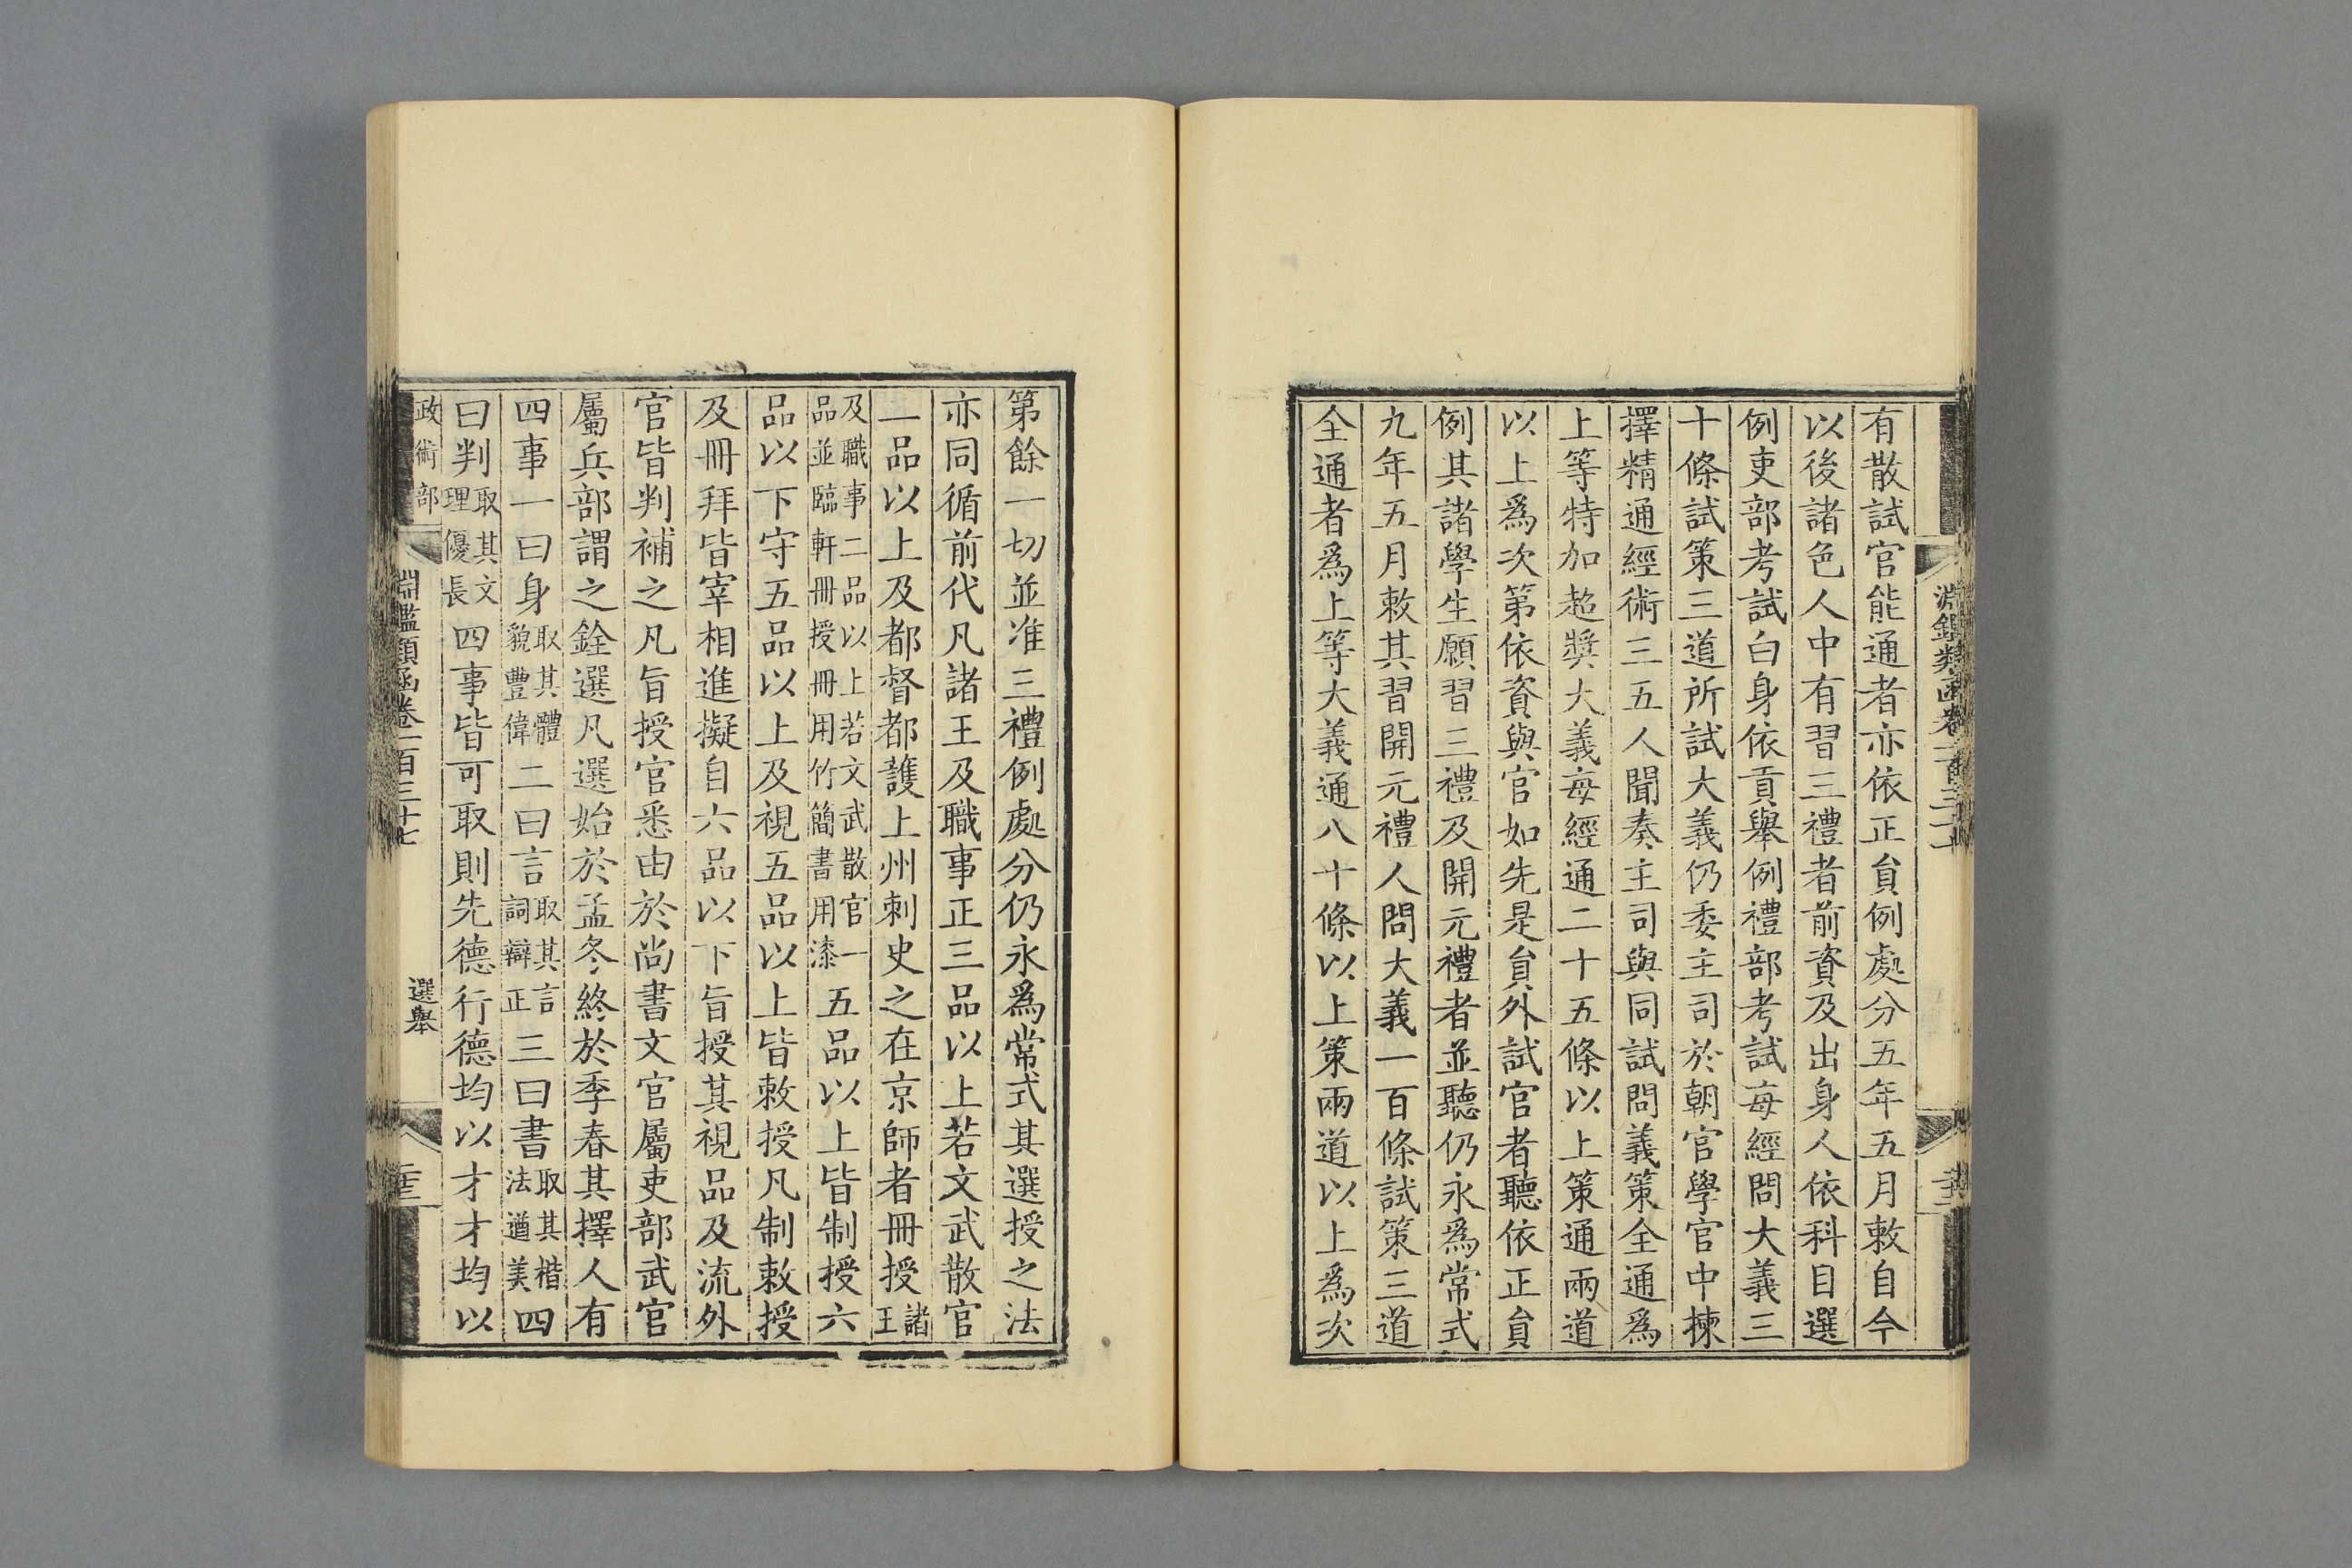 有散試官能通者亦依正貟例處分五年五月敕自今
以後諸色人中有習三禮者前資及出身人依科目選
例吏部考試白身依貢舉例禮部考試每經問大義三
十條試策三道所試大義仍委主司於朝官學官中揀
擇精通經術三五人聞奏主司與同試問義策全通爲
上等特加超獎大義每經通二十五條以上策通兩道
以上爲次第依資與官如先是貟外試官者聽依正貟
例其諸學生願習三禮及開元禮者並聽仍永爲常式
九年五月敕其習開元禮人問大義一百條試策三道
全通者爲上等大義通八十條以上策兩道以上爲次
第餘一切並准三禮例處分仍永爲常式其選授之法
亦同循前代凡諸王及職事正三品以上若文武散官
二品以上及都督都護上州刺史之在京師者冊授諸王
及職事二品以上若文武散官一品並臨軒冊授冊用竹簡書用漆五品以上皆制授六
品以下守五品以上及視五品以上皆敕授凡制敕授
及冊拜皆宰相進擬自六品以下旨授其視品及流外
官皆判補之凡旨授官悉由於尚書文官屬吏部武官
屬兵部謂之銓選凡選始於孟冬終於季春其擇人有
四事一曰身取其體貌豐偉二曰言取其言詞辯正三曰書取其楷法遒美四
曰判取其文理優長四事皆可取則先德行德均以才才均以
政術部 淵鑑類函卷一百三十七 選舉